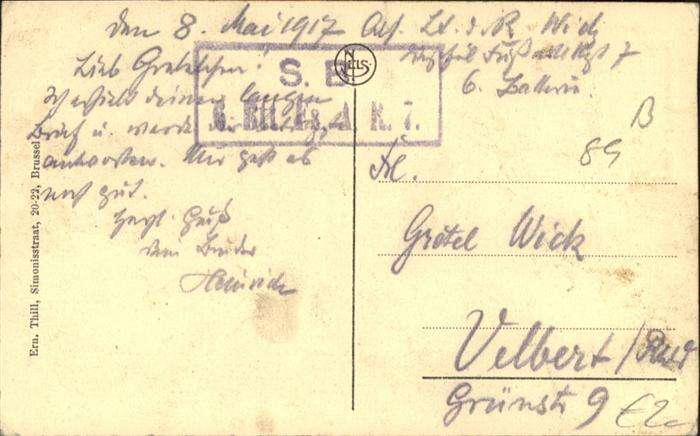 den 8. Mai 1917
Abs. Lt. d. R. Wick
Fußartl. Regt 7
6. Batterie
S. B.
6. BATT. R. 7.
NELS
Lieb Gretelchen!
Ich erhielt deinen langen
Brief u. werde
antworten. Mir geht es
noch gut.
Herzl. Gruß
Dein Bruder
Heinrich
Frl.
Gretel Wick
Velbert / Rhld
Grünstr 9
B
89
£2
Ern. Thill, Simonisstraat, 20-22, Brussel